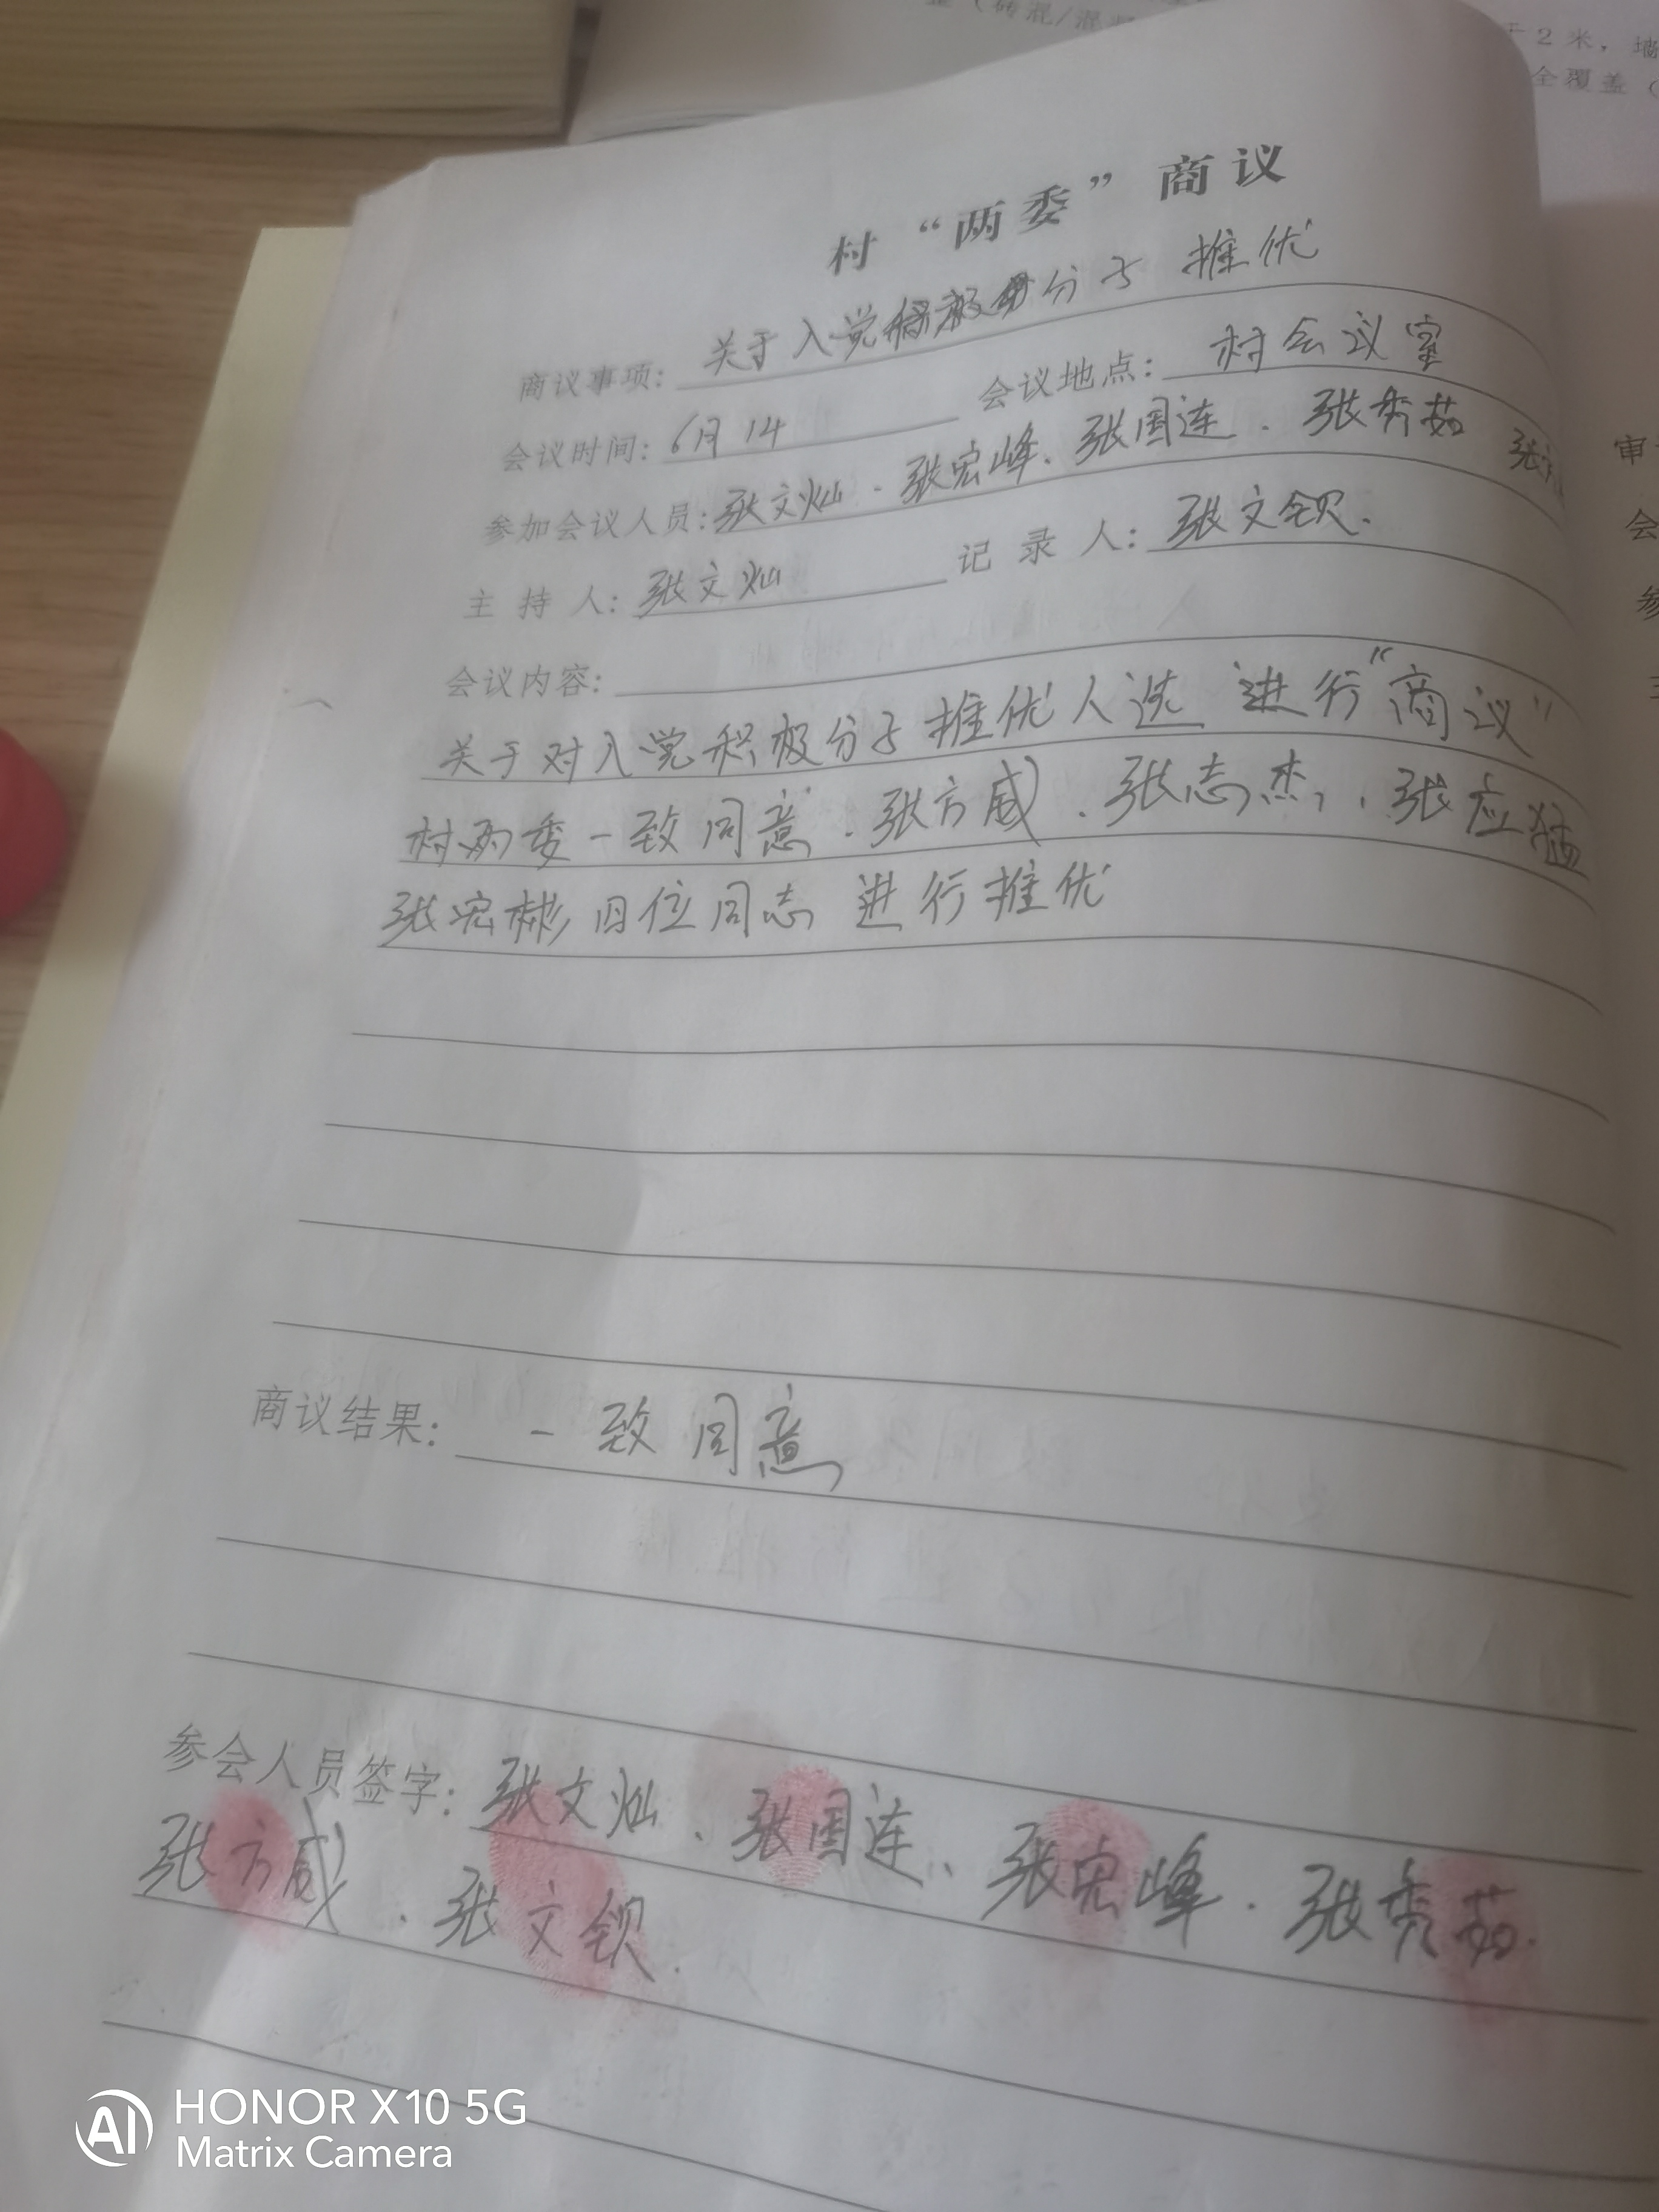 整（砖混/混
于2米，墙
全覆盖（
村“两委”商议
商议事项：关于入党积极分子 推优
会议时间：6月14 会议地点：村会议室
参加会议人员：张文灿．张宏峰、张国连．张秀茹 张
主 持 人：张文灿 记 录 人：张文钡．
会议内容：
关于对入党积极分子推优人选 进行“商议”
村两委一致同意．张方威．张志杰，．张应猛
张宏彬四位同志 进行推优
商议结果：一致同意
参会人员签字：张文灿．张国连、张宏峰．张秀茹．
张方威．张文钡．
审
会
参
主
AI HONOR X10 5G
Matrix Camera